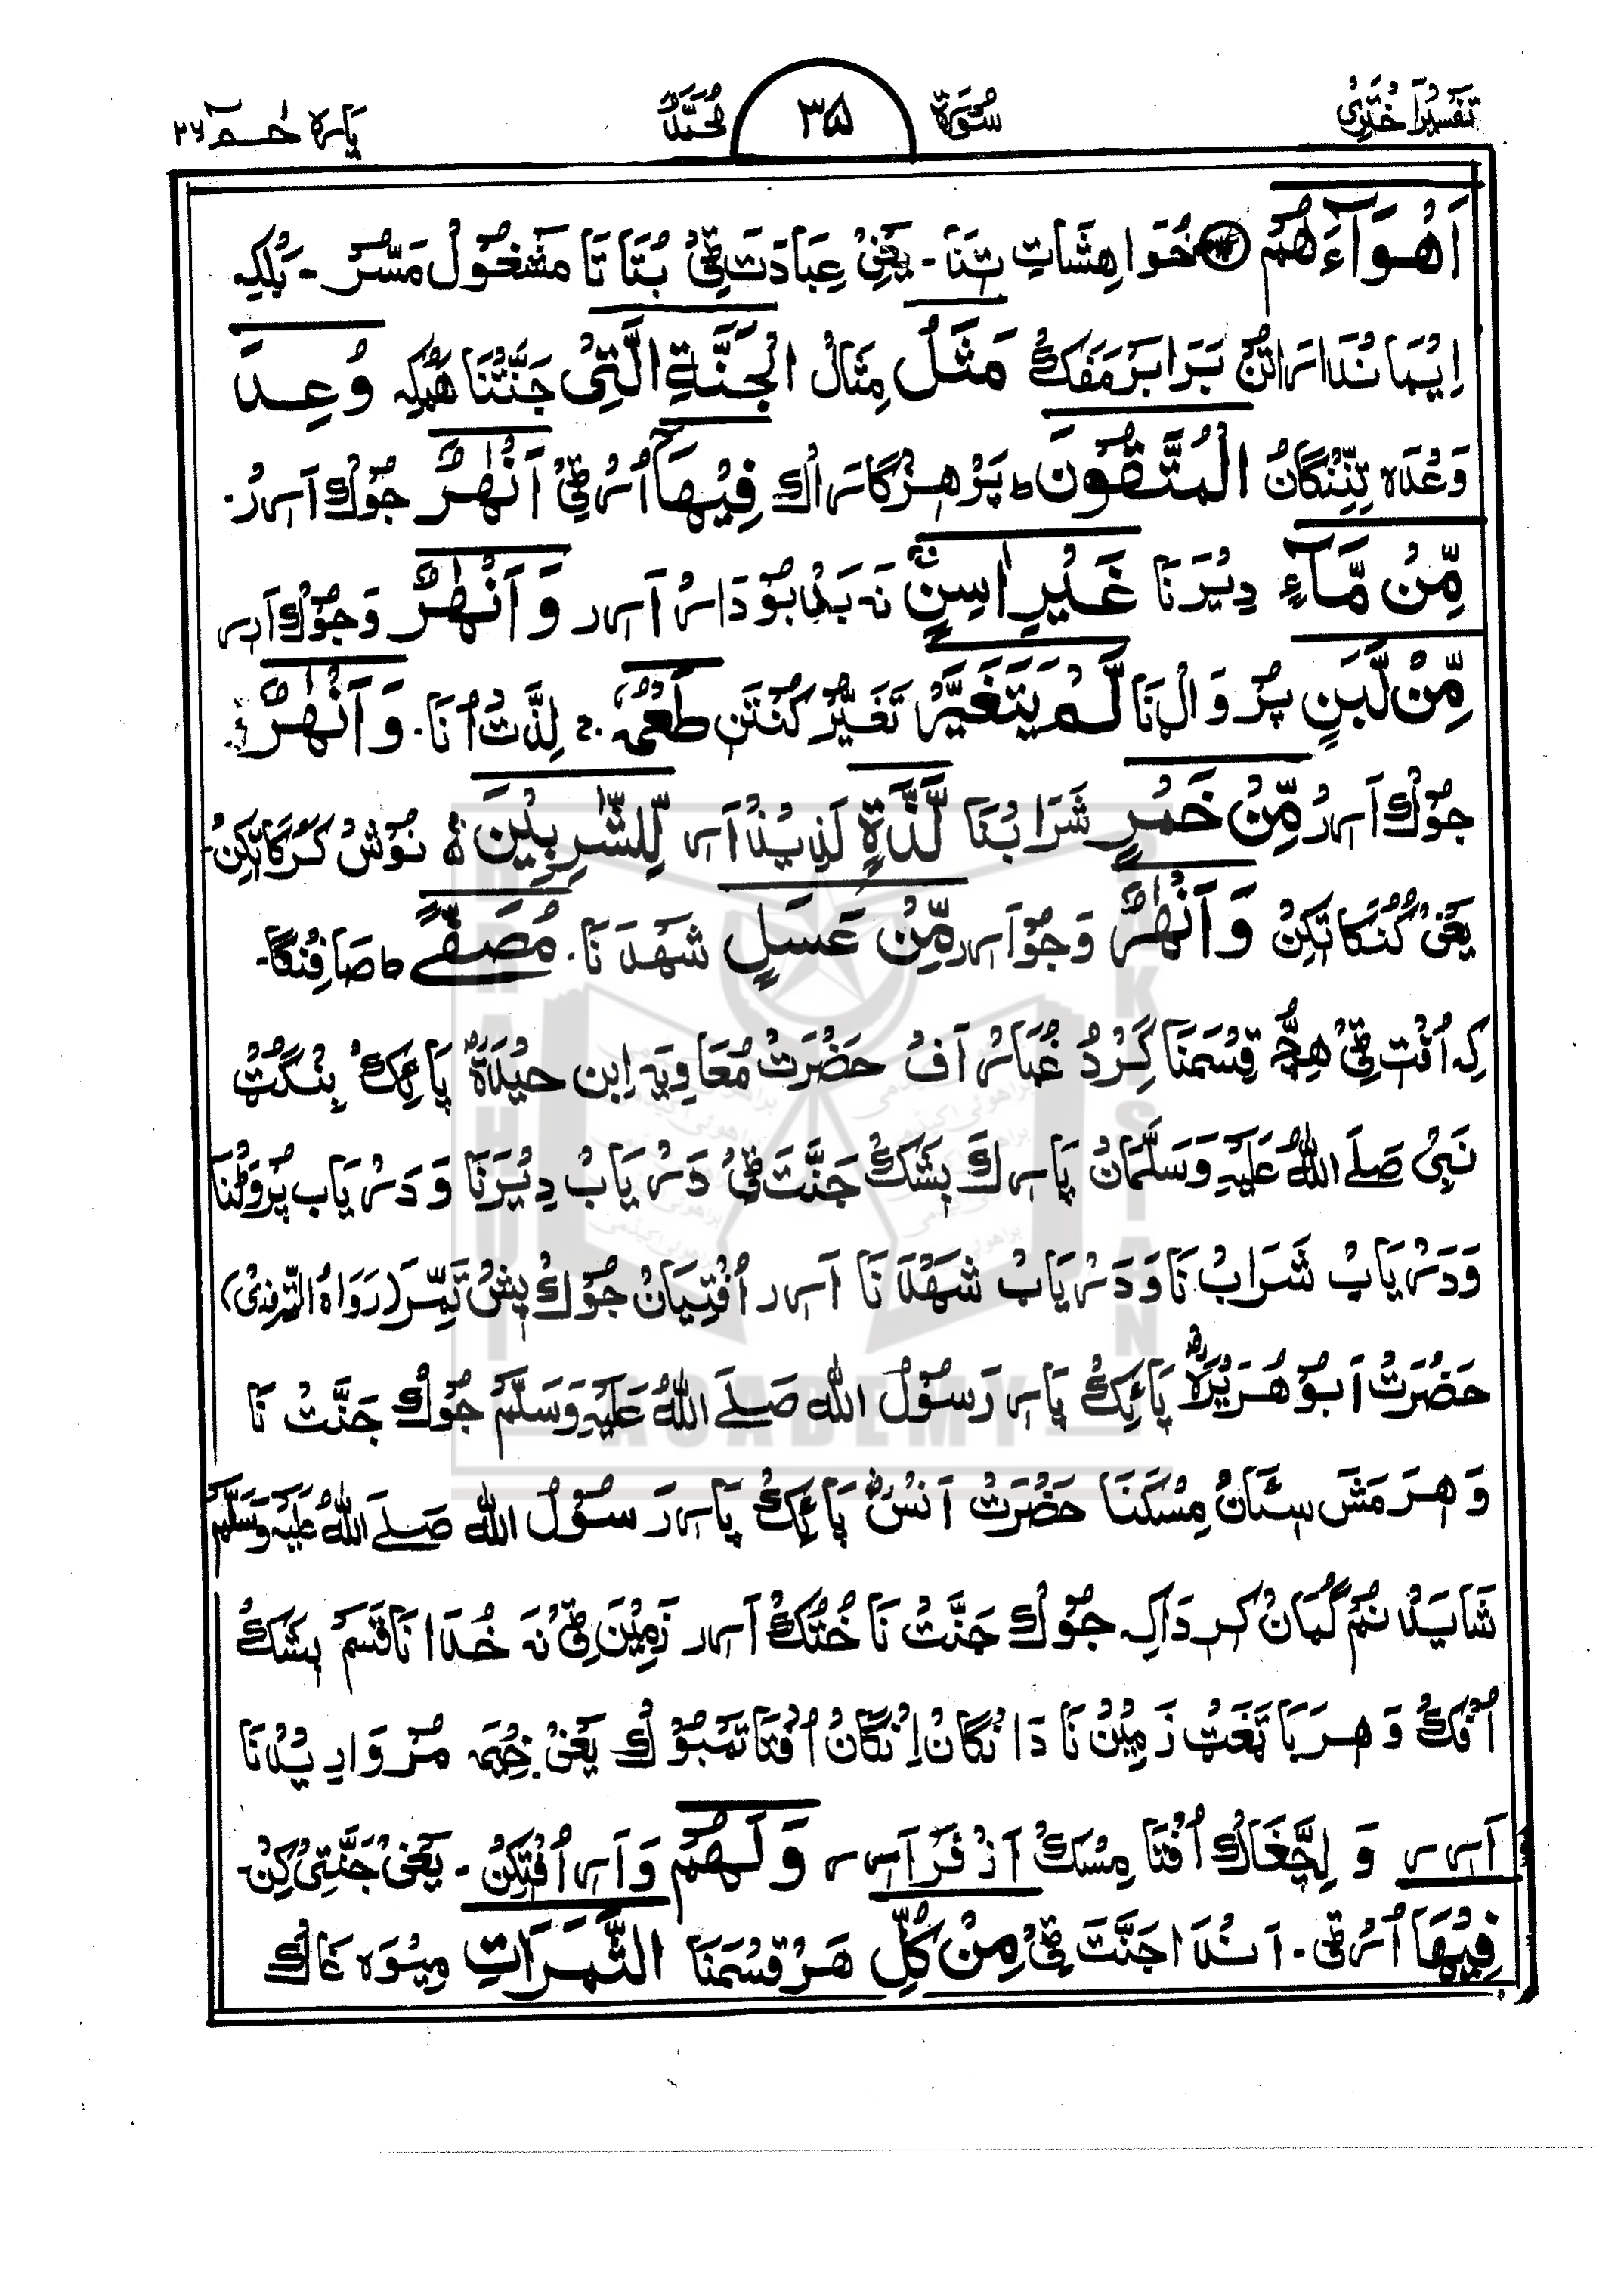 تفسیر اختری سُورَۃ ۳۵ مُحَمَّد پارہ حٰمٓ ۲۶
اَهْوَآءَهُمْ ۝ خُوَاهِشَاتِ تِنَا۔ یَعْنِیْ عِبَادَتَ ٹِیْ بُتَا تَا مَشْغُوْل مَسُّرْ۔ بَلْکِہ
اِیْمَانْدَارَاتُنْ بَرَابَرْ مَفَکْ مَثَلُ مِثَالْ الْجَنَّةِ الَّتِیْ جَنَّتْنَا هَمْکِہ وُعِدَ
وَعْدَہ تِنِّنْگَانْ الْمُتَّقُوْنَ ط پَرْهِزْگَارَاکْ فِیْهَآ اُرْٹِیْ اَنْهٰرٌ جُوْکْ اَرِرْ۔
مِّنْ مَّآءٍ دِیْرَنَا غَیْرِ اٰسِنٍ نَہ بَدْبُوْدَارْ اَرِر وَ اَنْهٰرٌ وَ جُوْکْ اَرِر
مِّنْ لَّبَنٍ پِرْ وَ الْ نَا لَمْ یَتَغَیَّرْ تَغَیُّرْ کَنْتَنِ طَعْمُہٗ ج لِذَّتْ اُنَا۔ وَ اَنْهٰرٌ
جُوْکْ اَرِرْ مِّنْ خَمْرٍ شَرَابْنَا لَّذَّةٍ لَذِیْذْ اَرِ لِّلشّٰرِبِیْنَ نُوْشْ کَرْکَاتِکِنْ۔
یَعْنِیْ کُنْکَاتِکِنْ وَ اَنْهٰرٌ وَ جُوْ اَرِر مِّنْ عَسَلٍ شَهْدَ نَا۔ مُصَفًّی ط صَافِنْگَا۔
کِہ اُفْتِ ٹِیْ هِچُّ قِسْمَنَا گِرْدُ غُبَارْ اَفْ حَضْرَتْ مُعَاوِیَہ اِبن حَیْدَہؓ پَائِکْ بِنْگَتْ
نَبِیْ صَلَّے اللہُ عَلَیْہِ وَسَلَّمَانْ پَارِکَ بَشَکْ جَنَّتَ ٹِیْ دَرْیَابْ دِیْرَنَا وَ دَرْیَاب پِرْوَالْنَا
وَ دَرْیَابْ شَرَابْ نَا وَ دَرْیَابْ شَهْدَ نَا اَرِر اُفْتِیَانْ جُوْکْ پِشْ تَمِّرَ (رَوَاهُ التِّرْمِذِیْ)
حَضْرَتْ اَبُوْ هُرَیْرَہؓ پَائِکْ پَارِ رَسُوْلُ اللہ صَلَّے اللہُ عَلَیْہِ وَسَلَّمْ جُوْکْ جَنَّتْ نَا
وَ هِرَ مَشَ سِٹَانْ مِسْکَنَا حَضْرَتْ اَنَسْؓ پَائِکْ پَارِ رَسُوْلُ اللہ صَلَّے اللہُ عَلَیْہِ وَسَلَّمْ
شَایَدْ نُمْ گُمَانْ کِرِ دَاکِہ جُوْکْ جَنَّتْ نَا خُتُکْ اَرِر زَمِیْنَ ٹِیْ نَہ خُدَا نَا قَسَمْ بِشَکْ
اُفْکْ وَهِرَ بَا تَغَتْ زَمِیْنْ نَا دَانْگَانْ اِنْگَانْ اُفْتَا تَمْبُوْکْ یَعْنِیْ خِیْمَہ مَرْوَارِیْدْ نَا
اَرِر وَ لِچَّغَاکْ اُفْتَا مِسْکْ اَذْفَرْ اَرِر وَ لَهُمْ وَ اَرِ اُفْتِکِنْ۔ یَعْنِیْ جَنَّتِیْ کِنْ۔
فِیْهَا اُرْٹِیْ۔ اَنْدَا جَنَّتَ ٹِیْ مِنْ کُلِّ هَرْ قِسْمَنَا الثَّمَرَاتِ مِیْوَہ غَاکْ